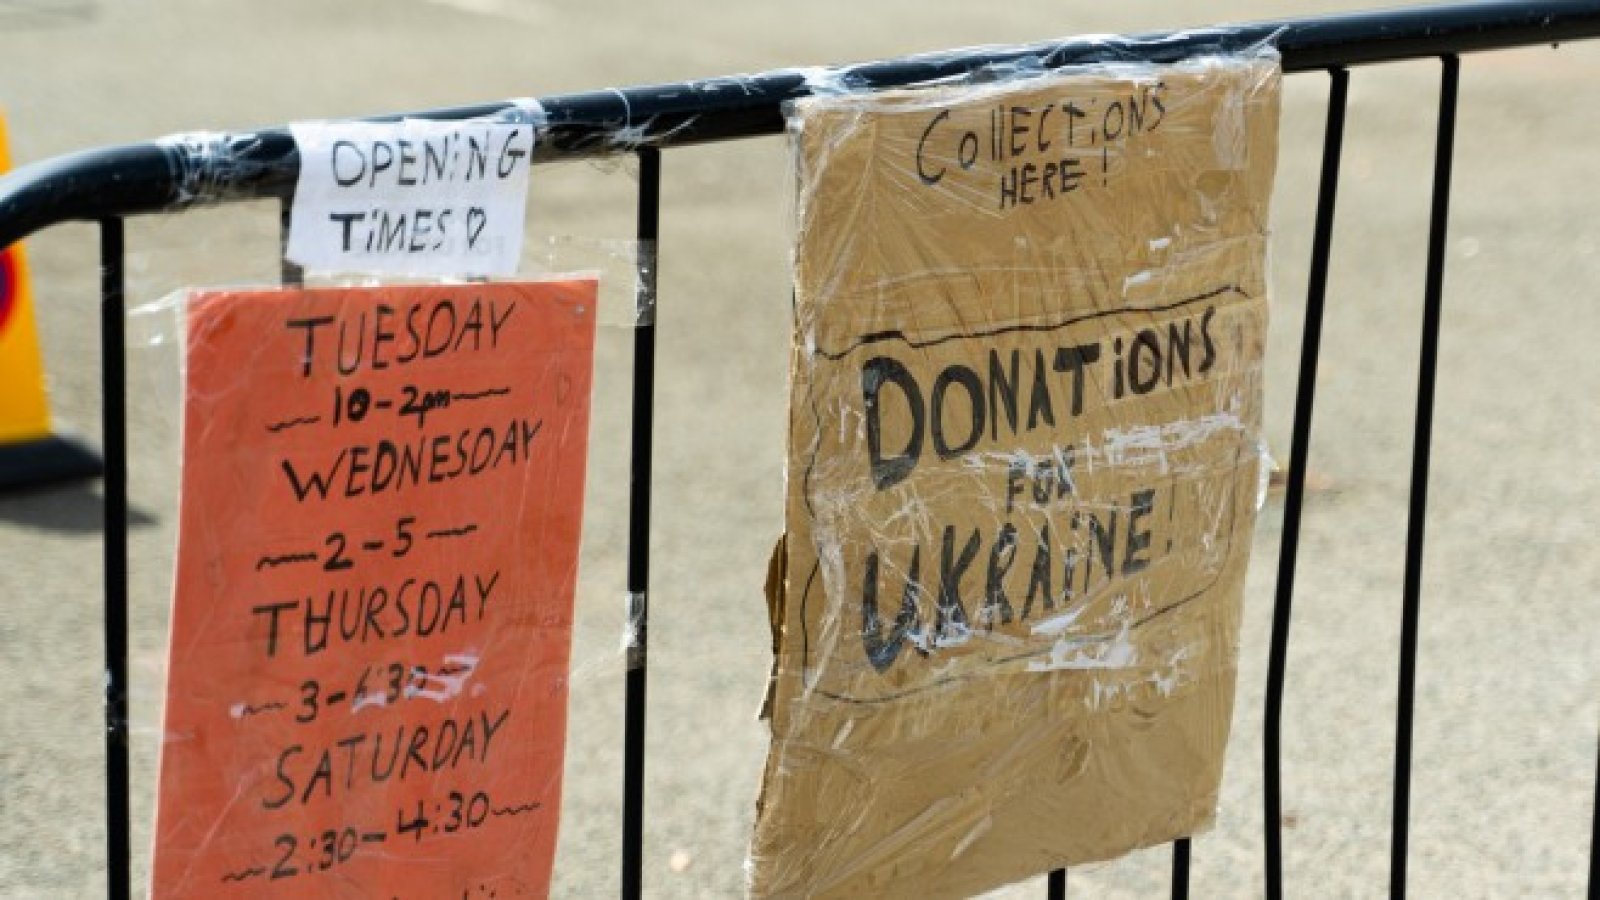 OPENiNG
TiMES ♡
TUESDAY
10-2pm
WEDNESDAY
2-5
THURSDAY
3-6:30
SATURDAY
2:30-4:30
CollECTiONS
HERE!
DONATiONS
FOR
UKRAiNE!